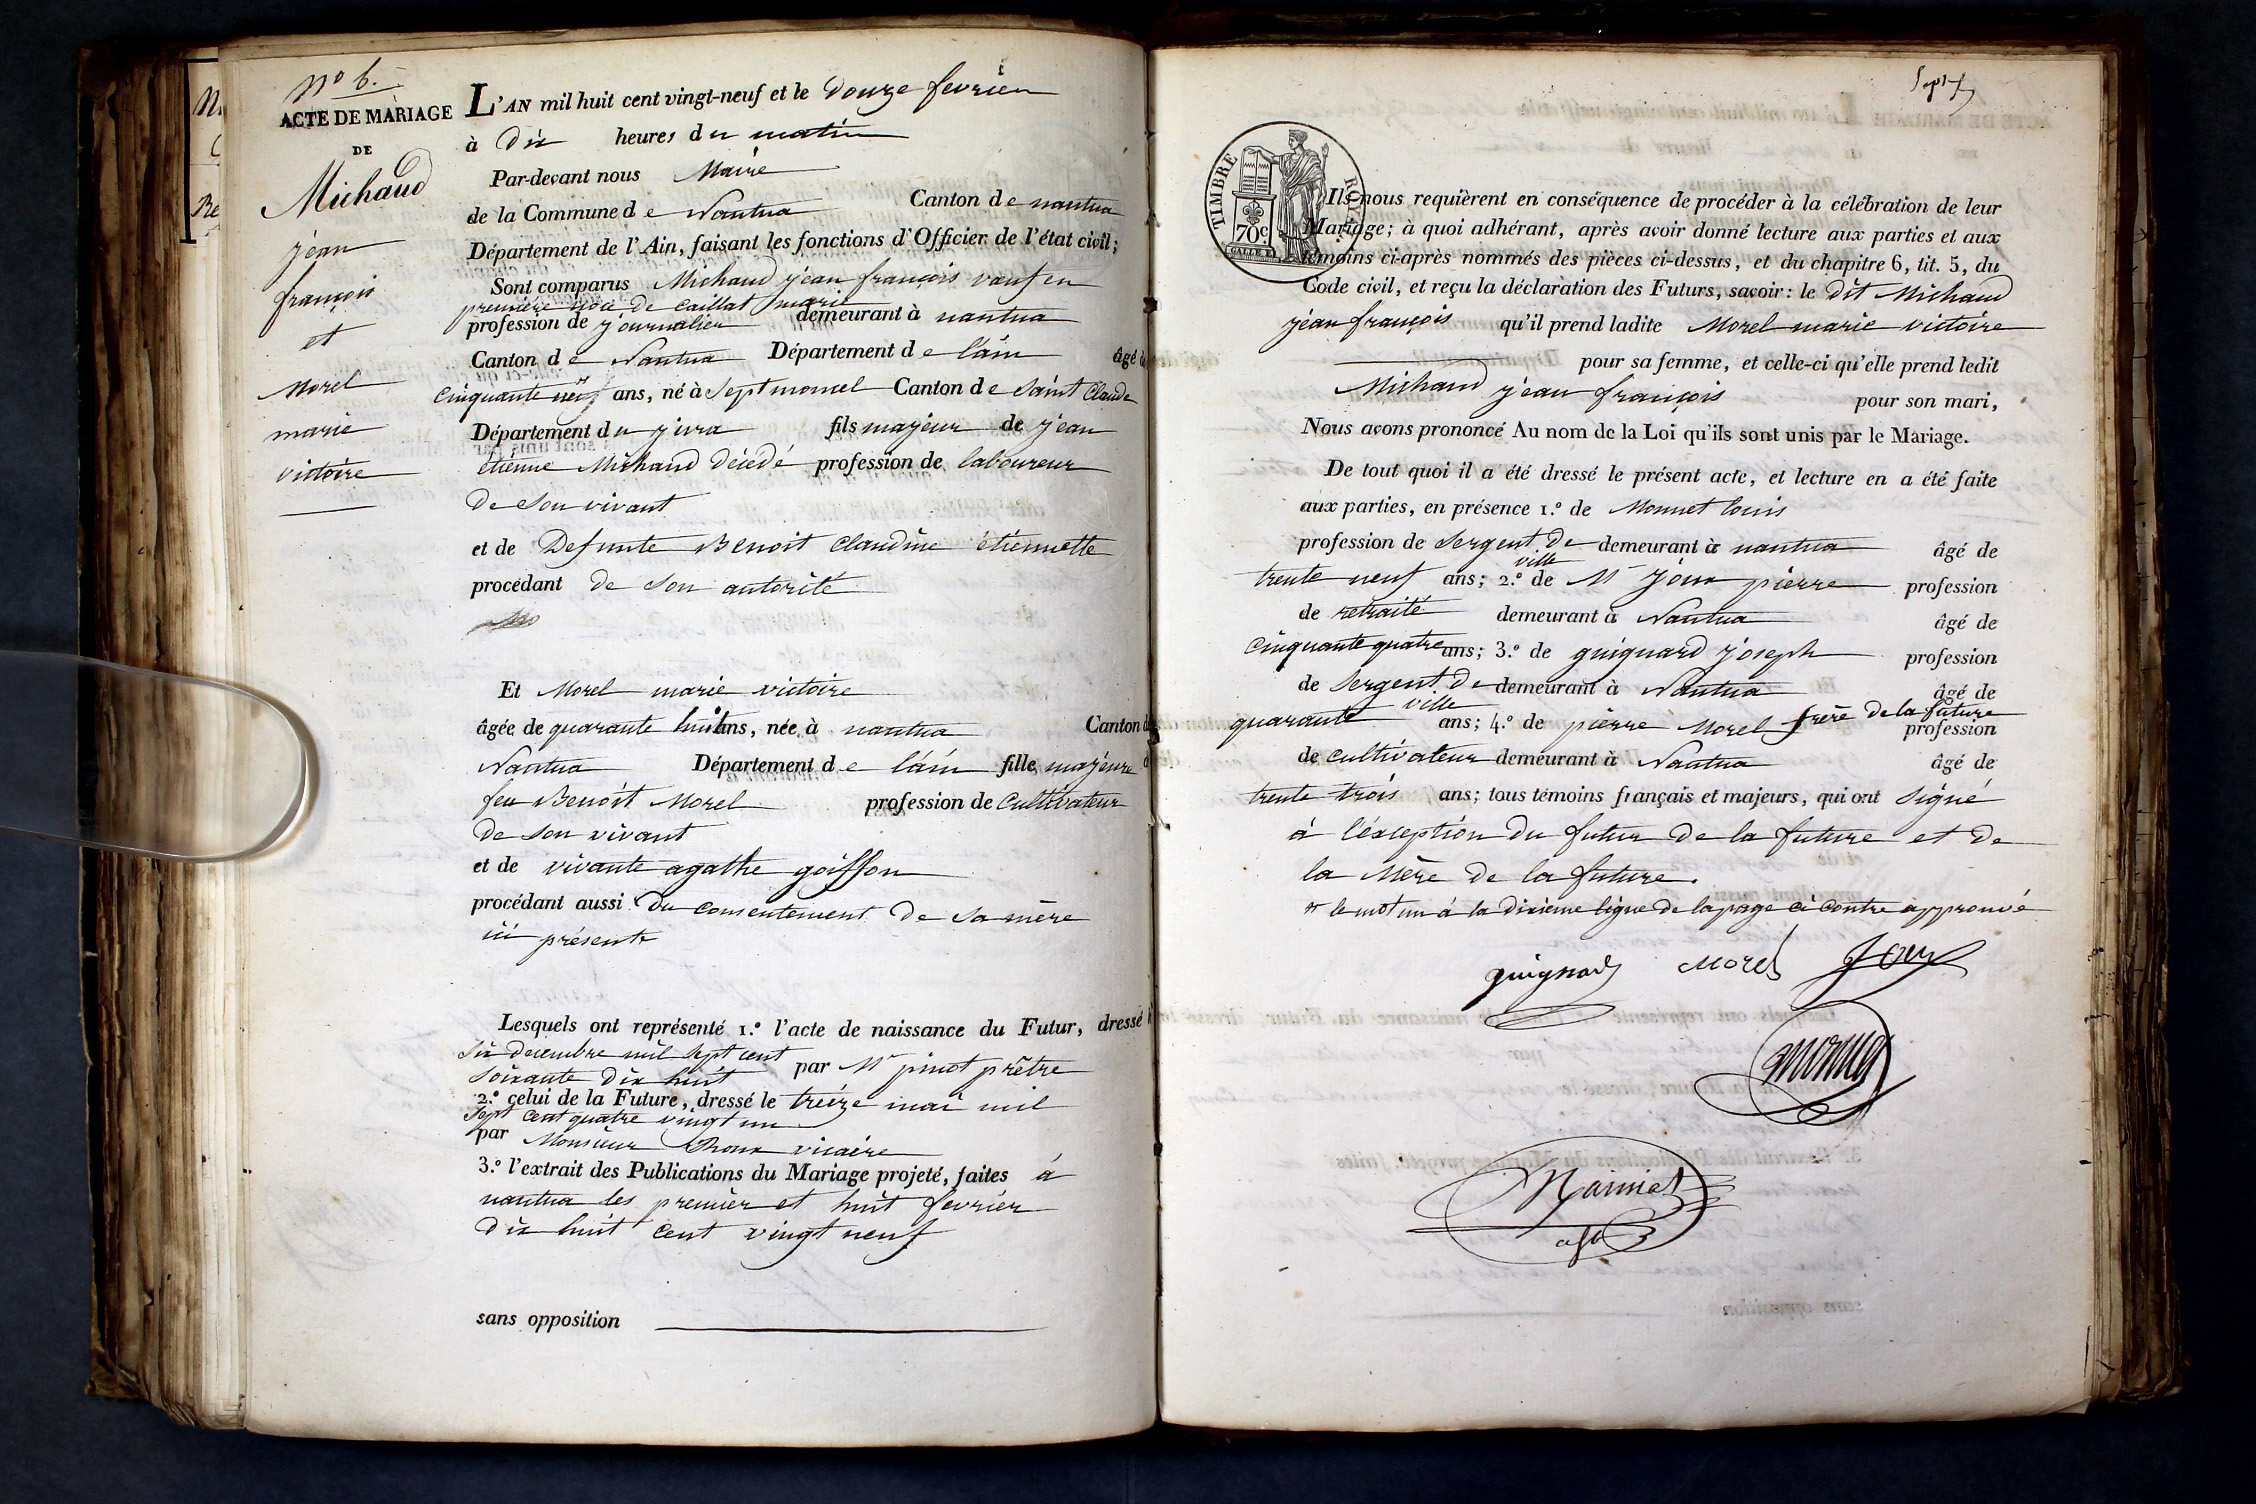 No 6.
ACTE DE MARIAGE
DE
Michaud
jean
françois
et
Morel
marie
victoire
L'AN mil huit cent vingt-neuf et le douze fevrier
à dix heures du matin
Par-devant nous Maire
de la Commune de Nantua Canton de nantua
Département de l'Ain, faisant les fonctions d'Officier de l'état civil;
Sont comparus Michaud jean françois vauf en
première noce de caillat marie
profession de journalier demeurant à nantua
Canton de Nantua Département de l'ain âgé
cinquante ans, né à Septmoncel Canton de Saint Claude
Département du jura fils majeur de jean
étienne Michaud décédé profession de laboureur
de son vivant
et de Defunte Benoit claudine étiennette
procédant de son autorité
Et Morel marie victoire
âgée de quarante huit ans, née à nantua Canton
Nantua Département de l'ain fille majeure
feu Benoit Morel profession de cultivateur
de son vivant
et de vivante agathe goiffon
procédant aussi du consentement de sa mère
ici présente
Lesquels ont représenté 1.º l'acte de naissance du Futur, dressé
six decembre mil sept cent
soixante dix huit par Mr pinot prêtre
2.º celui de la Future, dressé le treize mai mil
sept cent quatre vingt un
par Monsieur vicaire
3.º l'extrait des Publications du Mariage projeté, faites à
nantua les premier et huit fevrier
dix huit cent vingt neuf
sans opposition
Sept
TIMBRE ROYAL
70c
Ils nous requièrent en conséquence de procéder à la célébration de leur
Mariage; à quoi adhérant, après avoir donné lecture aux parties et aux
témoins ci-après nommés des pièces ci-dessus, et du chapitre 6, tit. 5, du
Code civil, et reçu la déclaration des Futurs, savoir: le dit Michaud
jean françois qu'il prend ladite Morel marie victoire
pour sa femme, et celle-ci qu'elle prend ledit
Michaud jean françois pour son mari,
Nous avons prononcé Au nom de la Loi qu'ils sont unis par le Mariage.
De tout quoi il a été dressé le présent acte, et lecture en a été faite
aux parties, en présence 1.º de Monnet louis
profession de Sergent de ville demeurant à nantua âgé de
trente neuf ans; 2.º de Mr joux pierre profession
de retraité demeurant à Nantua âgé de
cinquante quatre ans; 3.º de guignard joseph profession
de Sergent de ville demeurant à Nantua âgé de
quarante ans; 4.º de pierre Morel frère de la future profession
de cultivateur demeurant à Nantua âgé de
trente trois ans; tous témoins français et majeurs, qui ont signé
à l'éxception du futur de la future et de
la Mère de la future.
le mot un à la dixieme ligne de la page ci contre approuvé
guignard Morel Joux